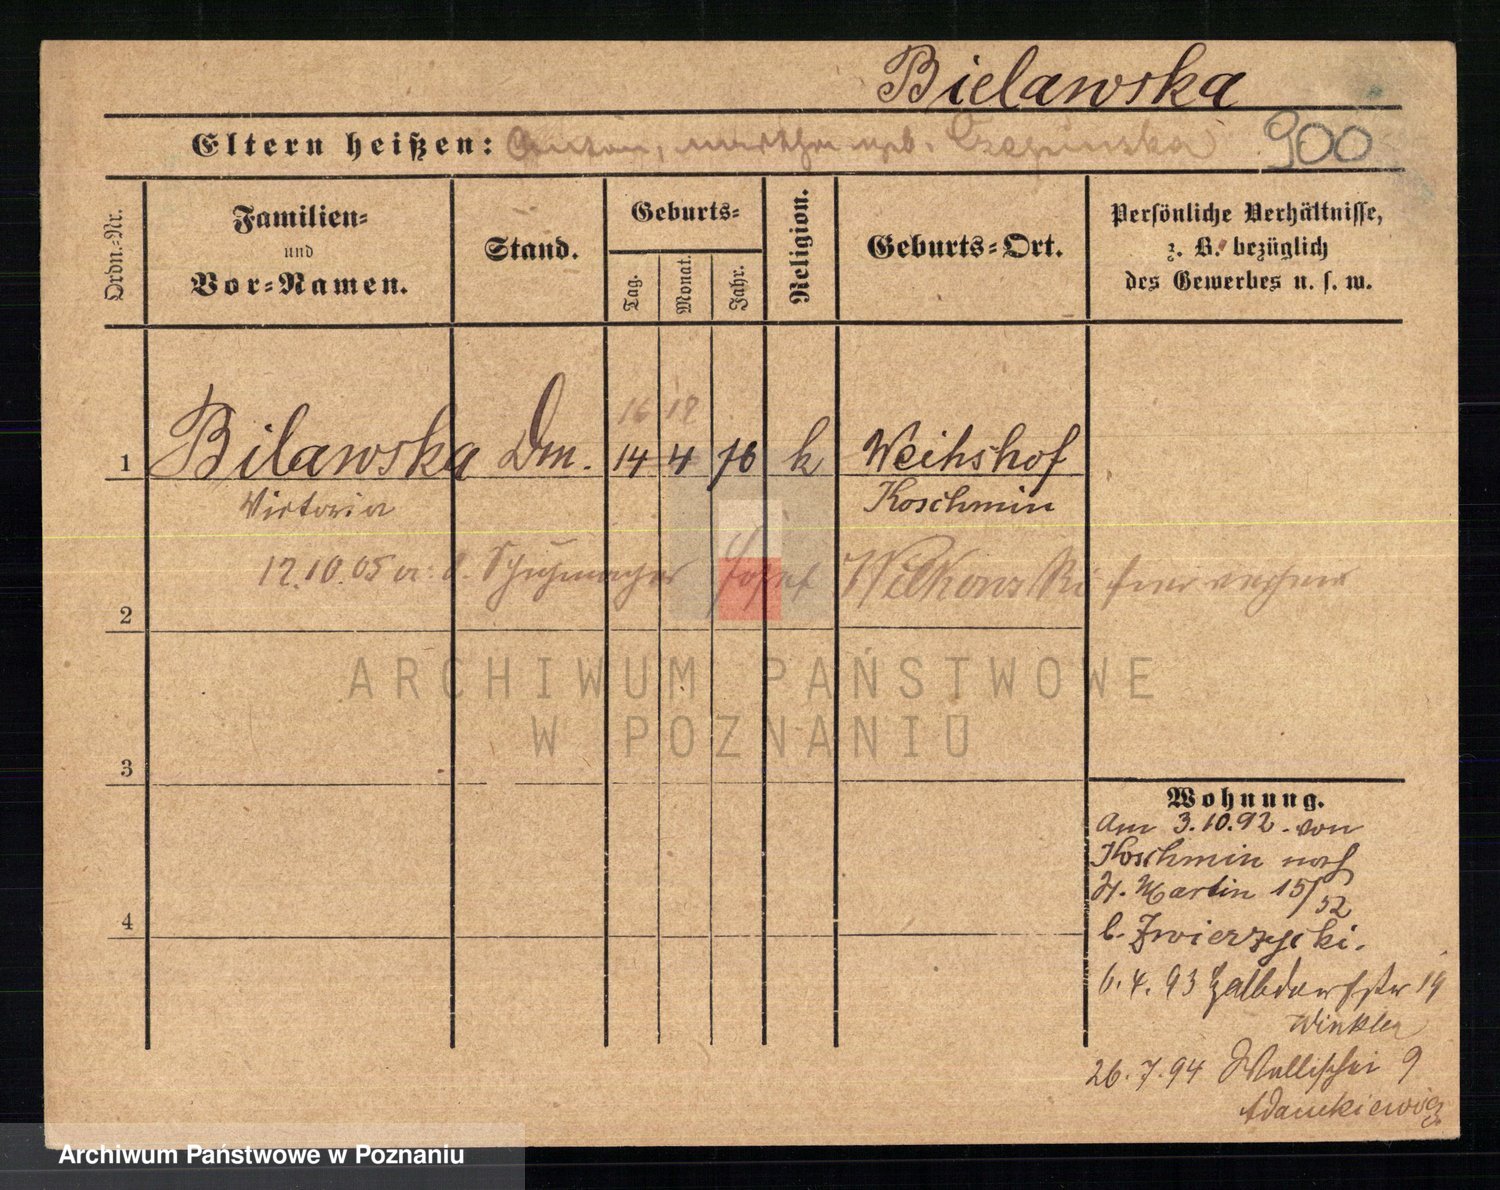 Bielawska
Eltern heißen: Anton, Martha geb. Czapinska 900
Ordn.-Nr.
Familien-
und
Vor-Namen.
Stand.
Geburts-
Tag.
Monat.
Jahr.
Religion.
Geburts-Ort.
Persönliche Verhältnisse,
z. B. bezüglich
des Gewerbes u. s. w.
16 12
1 Bilawska Dm. 14 4 76 k Weihshof
Victoria Koschmin
12.10.05 a. d. Schuhmacher Josef Wilkonski
2
3
4
Wohnung.
Am 3.10.92. von
Koschmin nach
St. Martin 15/52
b. Zwierzycki.
6.4.93 Halbdorfstr 19
Winkler
26.7.94 Wallischei 9
Adamkiewicz
ARCHIWUM PAŃSTWOWE
W POZNANIU
Archiwum Państwowe w Poznaniu